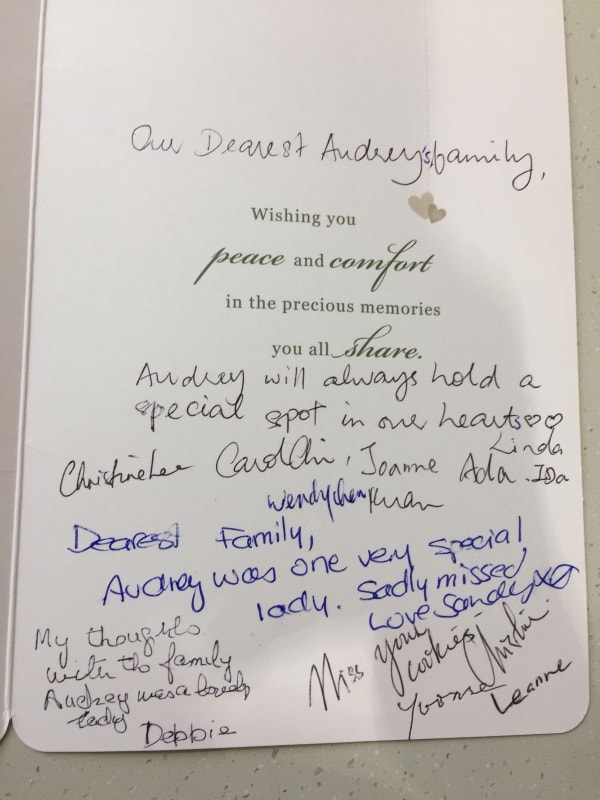 Our Dearest Audrey's family,
Wishing you
peace and comfort
in the precious memories
you all share.
Audrey will always hold a
special spot in our hearts♡♡
Christine Lee Carol Chin, Joanne Ada. Linda IDa
Wendy chen Kwan
Dearest Family,
Audrey was one very special
lady. Sadly missed
Love Sandy xo
My thoughts
with the family
Audrey was a lovely
lady
Debbie
Miss your cookies
Yvonne
Leanne